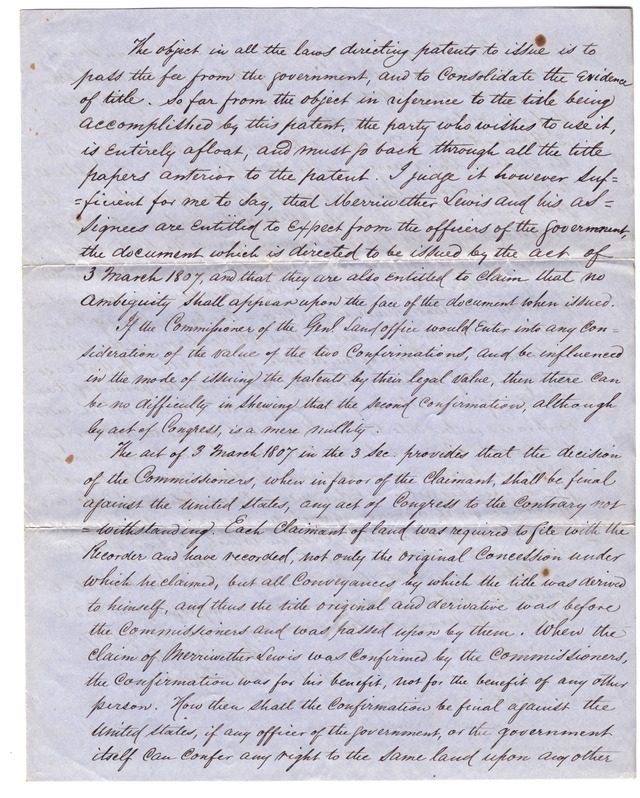 The object in all the laws directing patents to issue is to
pass the fee from the government, and to Consolidate the Evidence
of title. So far from the object in reference to the title being
accomplished by this patent, the party who wishes to use it,
is Entirely afloat, and must go back through all the title
papers anterior to the patent. I judge it however Suf=
=ficient for me to Say, that Merriwether Lewis and his as=
Signees are Entitled to Expect from the officers of the government,
the document which is directed to be issued by the act of
3 March 1807, and that they are also Entitled to Claim that no
Ambiguity Shall appear upon the face of the document when issued.
If the Commissioner of the Genl Land office would Enter into any Con=
sideration of the value of the two Confirmations, and be influenced
in the mode of issuing the patents by their legal value, then there can
be no difficulty in shewing that the second confirmation, although
by act of Congress, is a mere nullity.
The act of 3 March 1807 in the 3 Sec. provides that the decision
of the Commissioners, when in favor of the Claimant, shall be final
against the United States, any act of Congress to the Contrary not
=withstanding. Each Claimant of land was required to file with the
Recorder and have recorded, not only the original Concession under
which he claimed, but all Conveyances by which the title was derived
to himself, and thus the title original and derivative was before
the Commissioners and was passed upon by them. When the
Claim of Merriwether Lewis was confirmed by the Commissioners,
the Confirmation was for his benefit, not for the benefit of any other
person. How then shall the Confirmation be final against the
United States, if any officer of the government, or the government
itself Can Confer any right to the same land upon any other